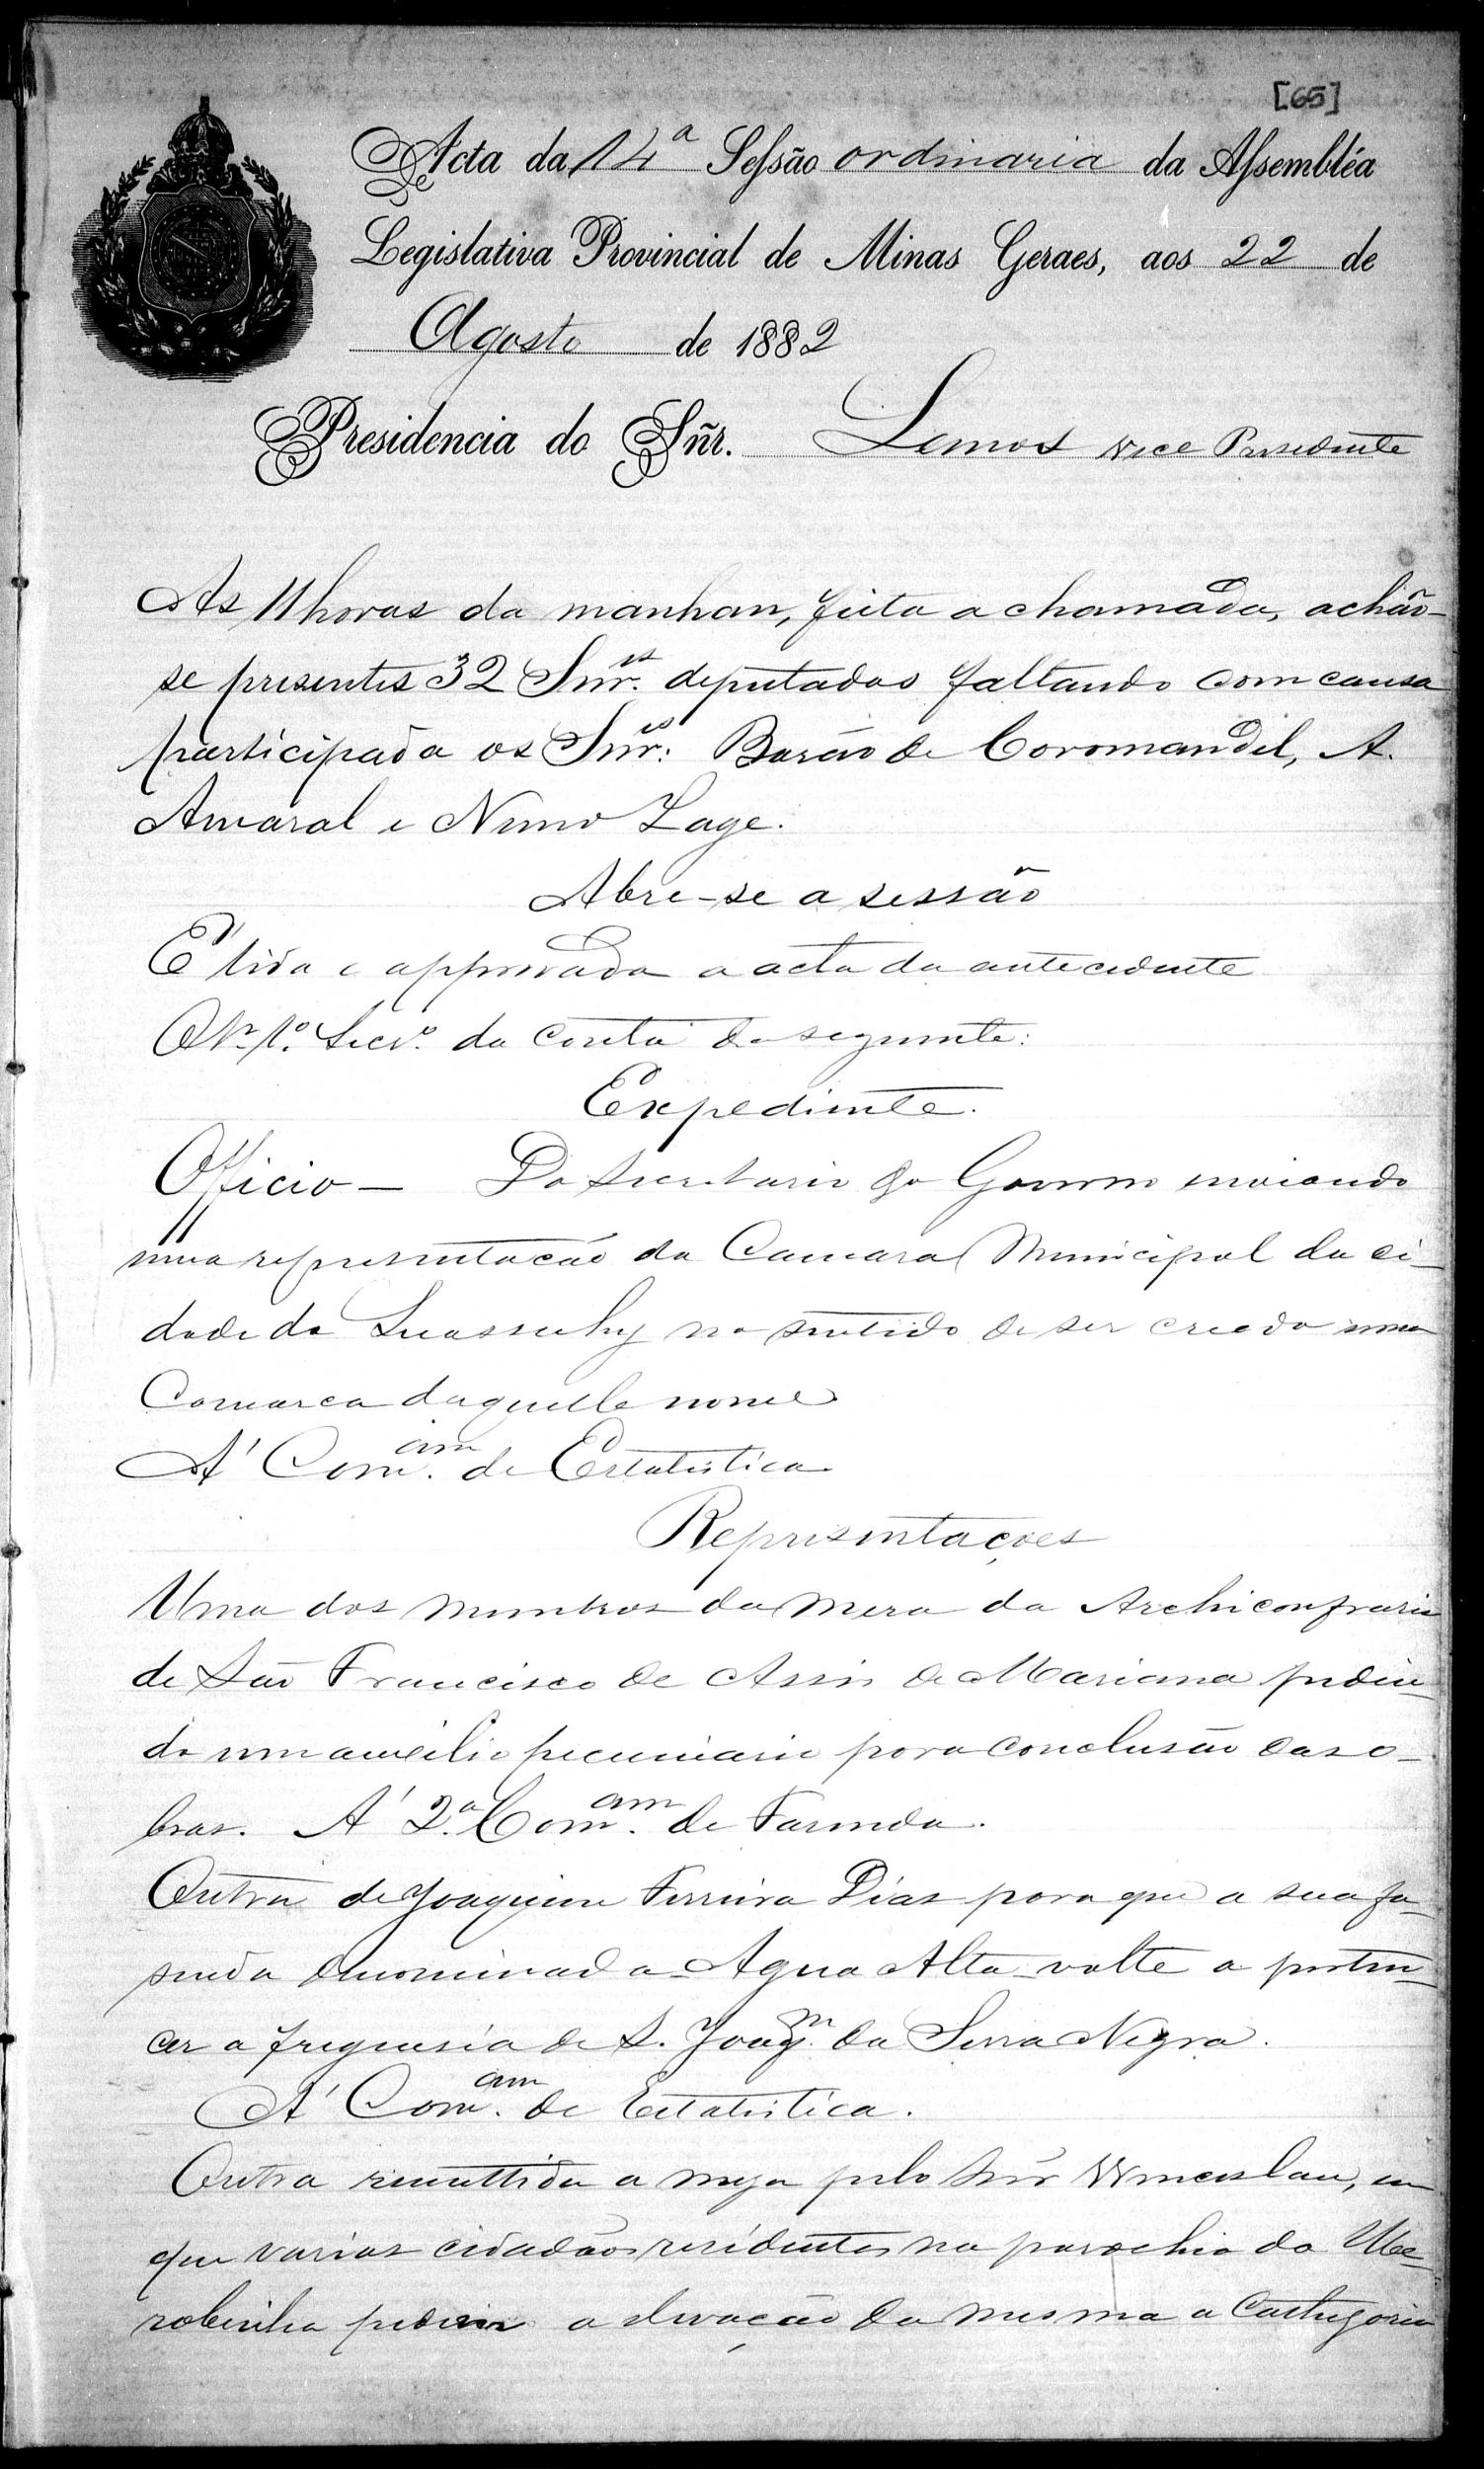 [65]
Acta da 14ª Sessão ordinaria da Assembléa
Legislativa Provincial de Minas Geraes, aos 22 de
Agosto de 1882
Presidencia do Sñr. Lemos Vice Presidente
As 11 horas da manhan, feita a chamada, achão-
se presentes 32 Snr.es deputados faltando com causa
participada os Snr.es Barão de Coromandel, A.
Amaral e Nuno Lage.
Abre-se a sessão
É lida e approvada a acta da antecedente
O Sr. 1º Secr.º da conta do seguinte:
Expediente.
Officio — Do Secretario do Governo enviando
uma representacão da Camara Municipal da ci-
dade do Suassuhy no sentido de ser creada uma
Comarca daquelle nome
A' Com.am de Estatistica
Representações
Uma dos membros da meza da Archiconfraria
de São Francisco de Assis de Marianna pedin-
do um auxilio pecuniario para conclusão das o-
bras. A' 2.ª Com.am de Fazenda.
Outra de Joaquim Ferreira Dias para que a sua fa-
senda denominada - Agua Alta - volte a perten-
cer a freguesia de S. Joaq.m da Serra Negra.
A' Com.am de Estatistica.
Outra remettida a meza pelo Snr Wenceslau, em
que varios cidadãos residentes na parochia do
pedem a elevação da mesma a Cathegoria